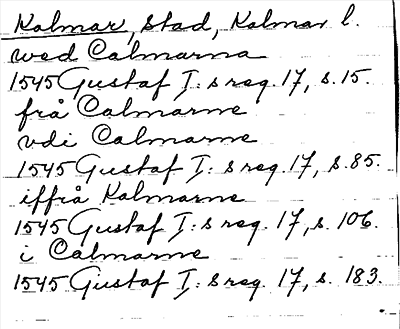 Kalmar, stad, Kalmar l.
wed Calmarna
1545 Gustaf I: s reg. 17, s. 15.
frå Calmarne
vdi Calmarne
1545 Gustaf I: s reg. 17, s. 85.
iffrå Kalmarne
1545 Gustaf I: s reg. 17, s. 106.
i Calmarne
1545 Gustaf I: s reg. 17, s. 183.